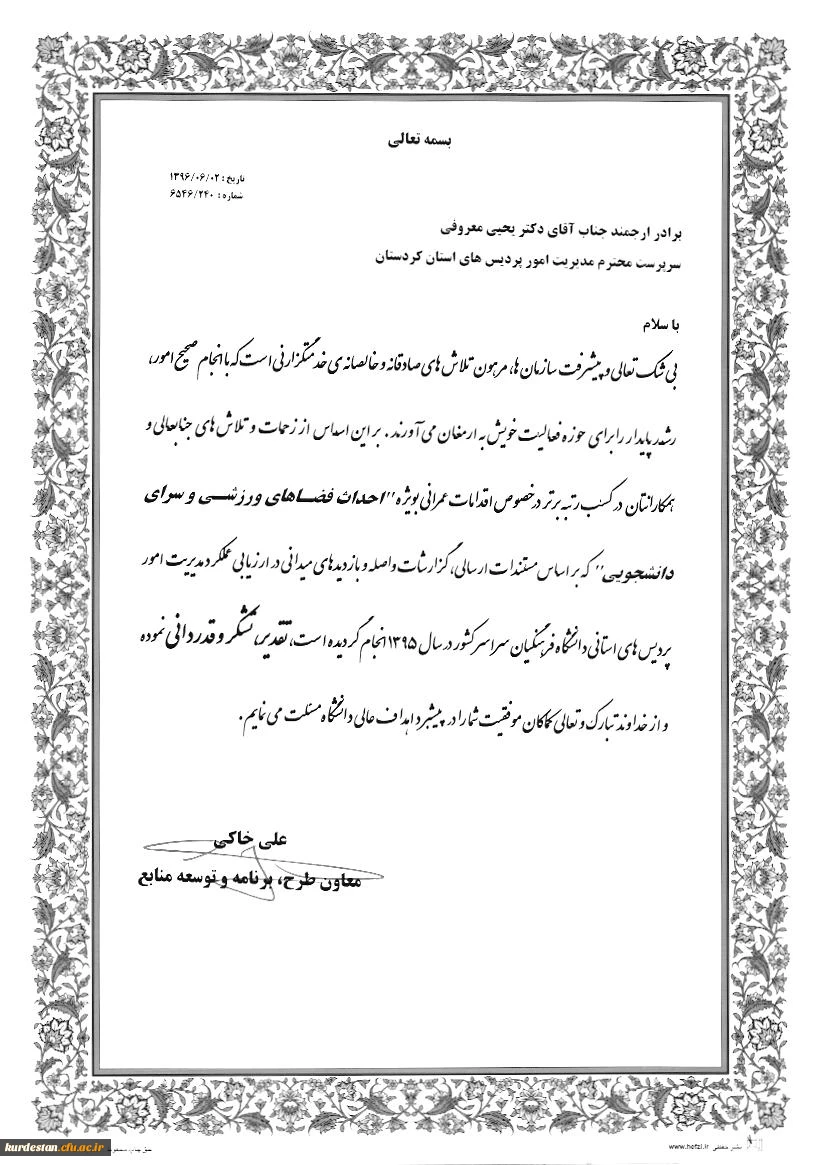 بسمه تعالی
تاریخ : ۱۳۹۶/۰۶/۰۲
شماره : ۶۵۴۶/۲۴۰
برادر ارجمند جناب آقای دکتر یحیی معروفی
سرپرست محترم مدیریت امور پردیس های استان کردستان
با سلام
بی شک تعالی و پیشرفت سازمان ها، مرهون تلاش های صادقانه و خالصانه ی خدمتگزارانی است که با انجام صحیح امور،
رشد پایدار را برای حوزه فعالیت خویش به ارمغان می آورند. بر این اساس از زحمات و تلاش های جنابعالی و
همکارانتان در کسب رتبه برتر در خصوص اقدامات عمرانی بویژه "احداث فضاهای ورزشی و سرای
دانشجویی" که بر اساس مستندات ارسالی، گزارشات واصله و بازدیدهای میدانی در ارزیابی عملکرد مدیریت امور
پردیس های استانی دانشگاه فرهنگیان سراسر کشور در سال ۱۳۹۵ انجام گردیده است، تقدیر، تشکر و قدردانی نموده
و از خداوند تبارک و تعالی کماکان موفقیت شما را در پیشبرد اهداف عالی دانشگاه مسئلت می نمایم.
علی خاکی
معاون طرح، برنامه و توسعه منابع
kurdestan.cfu.ac.ir
www.hefzi.ir نشر حفظی